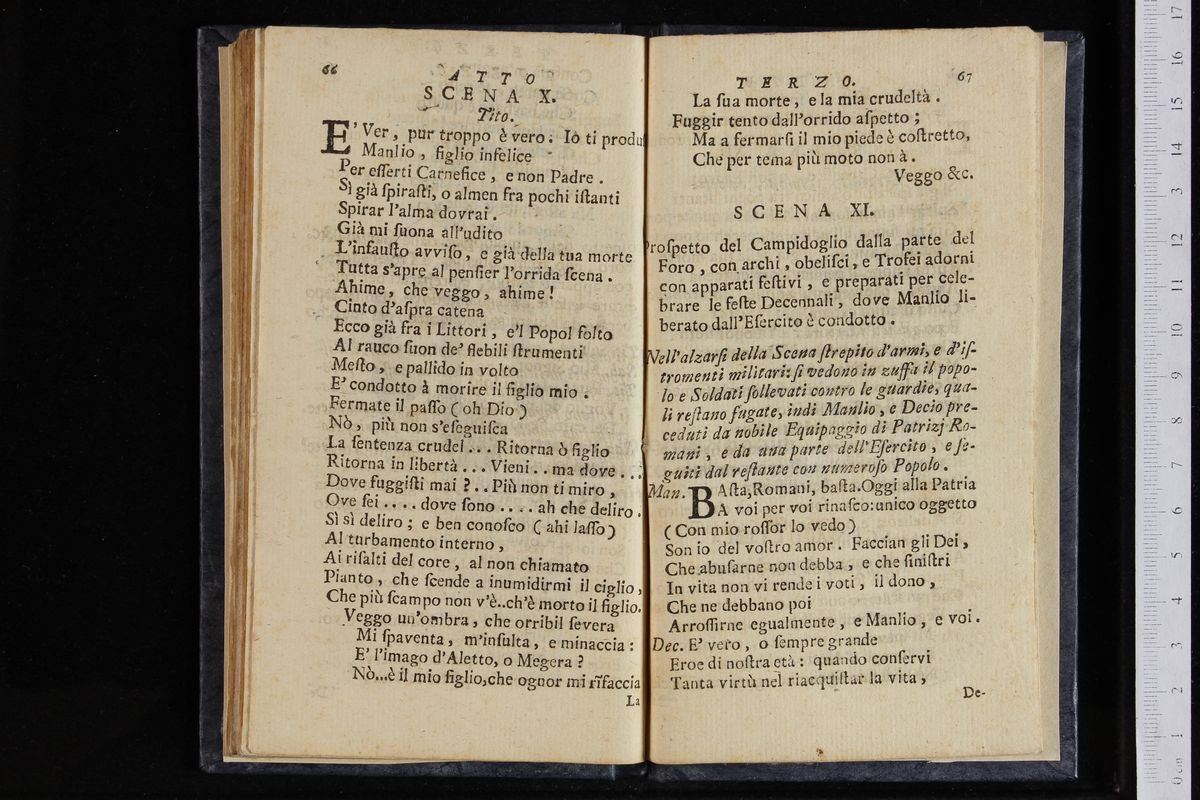 66
ATTO
SCENA X.
Tito.
E' Ver, pur troppo è vero. Io ti produ
Manlio, figlio infelice
Per eſſerti Carnefice, e non Padre.
Sì già ſpiraſti, o almen fra pochi iſtanti
Spirar l'alma dovrai.
Già mi ſuona all'udito
L'infauſto avviſo, e già della tua morte
Tutta s'apre al penſier l'orrida ſcena.
Ahime, che veggo, ahime!
Cinto d'aſpra catena
Ecco già fra i Littori, e'l Popol folto
Al rauco ſuon de' flebili ſtrumenti
Meſto, e pallido in volto
E' condotto à morire il figlio mio.
Fermate il paſſo (oh Dio)
Nò, più non s'eſeguiſca
La ſentenza crudel... Ritorna ò figlio
Ritorna in libertà... Vieni.. ma dove...
Dove fuggiſti mai?.. Più non ti miro,
Ove ſei.... dove ſono.... ah che deliro.
Sì sì deliro; e ben conoſco (ahi laſſo)
Al turbamento interno,
Ai riſalti del core, al non chiamato
Pianto, che ſcende a inumidirmi il ciglio,
Che più ſcampo non v'è..ch'è morto il figlio.
Veggo un'ombra, che orribil ſevera
Mi ſpaventa, m'inſulta, e minaccia:
E' l'imago d'Aletto, o Megera?
Nò...è il mio figlio,che ognor mi rīfaccia
La
TERZO.
67
La ſua morte, e la mia crudeltà.
Fuggir tento dall'orrido aſpetto;
Ma a fermarſi il mio piede è coſtretto,
Che per tema più moto non à.
Veggo &c.
SCENA XI.
Proſpetto del Campidoglio dalla parte del
Foro, con archi, obeliſci, e Trofei adorni
con apparati feſtivi, e preparati per cele-
brare le feſte Decennali, dove Manlio li-
berato dall'Eſercito è condotto.
Nell'alzarſi della Scena ſtrepito d'armi, e d'iſ-
tromenti militari: ſi vedono in zuffa il popo-
lo e Soldati ſollevati contro le guardie, qua-
li reſtano fugate, indi Manlio, e Decio pre-
ceduti da nobile Equipaggio di Patrizj Ro-
mani, e da una parte dell'Eſercito, e ſe-
guiti dal reſtante con numeroſo Popolo.
Man. BAſta,Romani, baſta.Oggi alla Patria
A voi per voi rinaſco:unico oggetto
(Con mio roſſor lo vedo)
Son io del voſtro amor. Faccian gli Dei,
Che abuſarne non debba, e che ſiniſtri
In vita non vi rende i voti, il dono,
Che ne debbano poi
Arroſſirne egualmente, e Manlio, e voi.
Dec. E' vero, o ſempre grande
Eroe di noſtra età: quando conſervi
Tanta virtù nel riacquiſtar la vita,
De-
0 cm 1 2 3 4 5 6 7 8 9 10 11 12 13 14 15 16 17